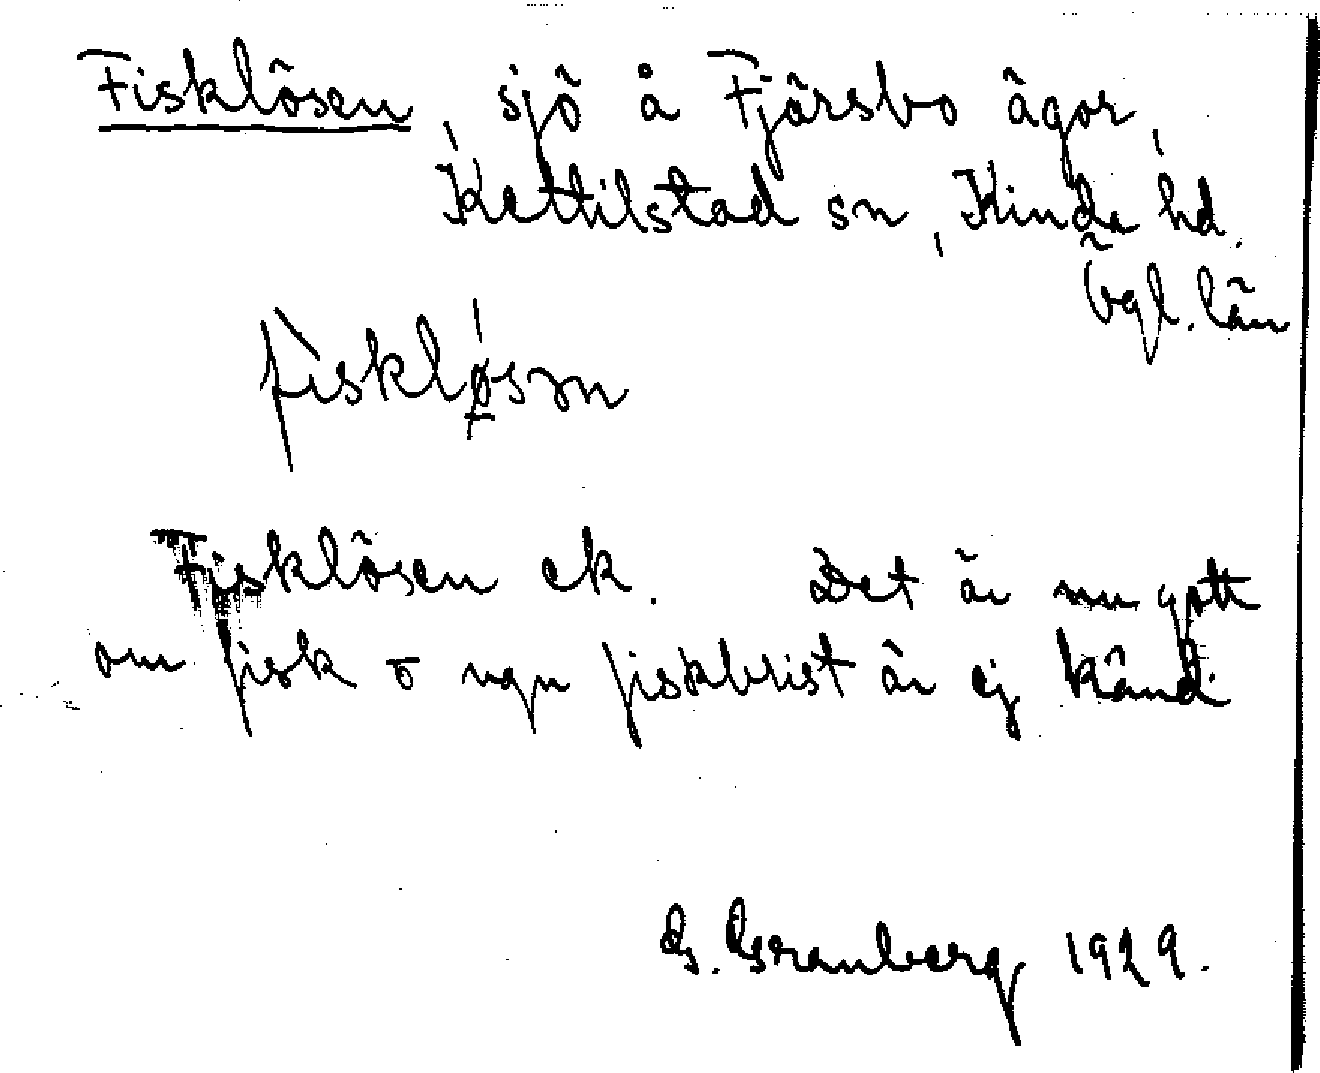 Fisklösen, sjö å Fjärsbo ägor,
Kettilstad sn, Kinda hd.
Ögl. län
fìskløsən
Fisklösen ek. Det är nu gott
om fisk o ngn fiskbrist är ej känd.
G. Granberg 1929.